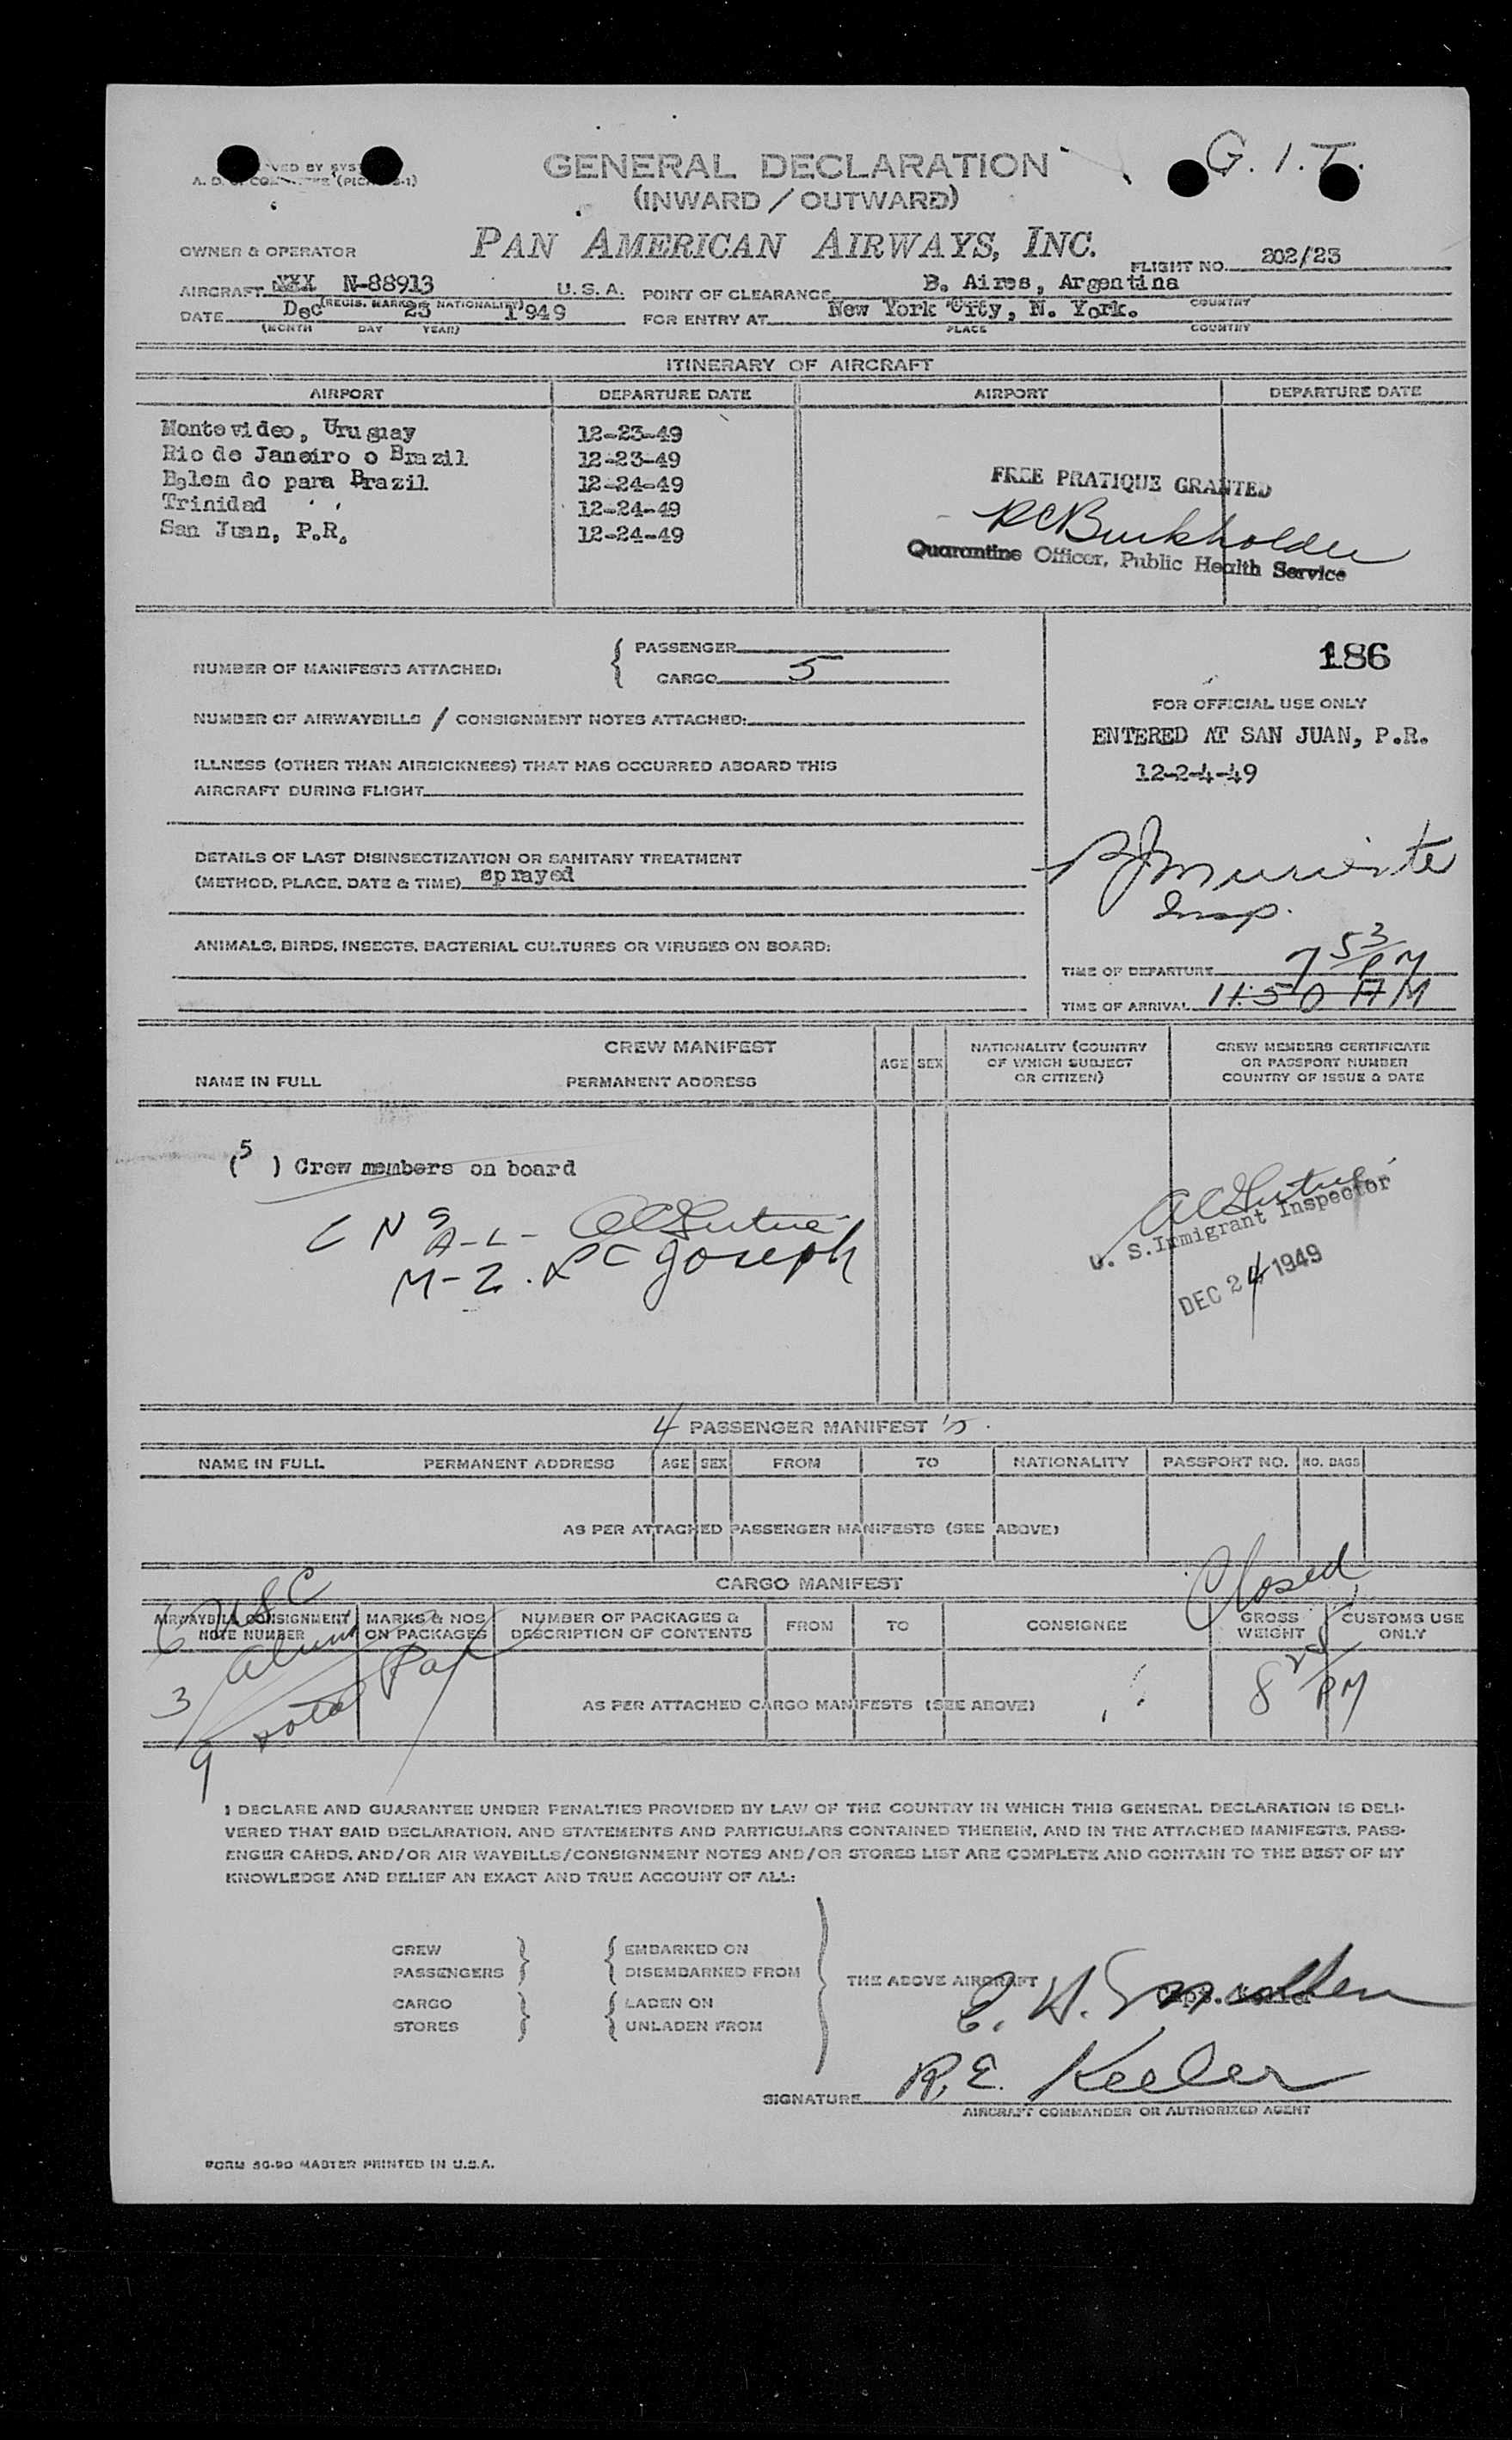 GENERAL DECLARATION
(INWARD / OUTWARD)
G. I. T.
OWNER & OPERATOR PAN AMERICAN AIRWAYS, INC.
FLIGHT NO. 202/23
AIRCRAFT XXX N-88913 U. S. A.
(REGIS. MARKS NATIONALITY)
POINT OF CLEARANCE B. Aires, Argentina
COUNTRY
DATE Dec 23 1949
(MONTH DAY YEAR)
FOR ENTRY AT New York City, N. York.
PLACE COUNTRY
ITINERARY OF AIRCRAFT
AIRPORT DEPARTURE DATE AIRPORT DEPARTURE DATE
Montevideo, Uruguay 12-23-49
Rio de Janeiro o Brazil 12-23-49
Belem do para Brazil 12-24-49
Trinidad 12-24-49
San Juan, P.R. 12-24-49
FREE PRATIQUE GRANTED
RCBurkholder
Quarantine Officer, Public Health Service
NUMBER OF MANIFESTS ATTACHED: PASSENGER
CARGO 5
186
NUMBER OF AIRWAYBILLS / CONSIGNMENT NOTES ATTACHED:
FOR OFFICIAL USE ONLY
ENTERED AT SAN JUAN, P.R.
12-2-4-49
ILLNESS (OTHER THAN AIRSICKNESS) THAT HAS OCCURRED ABOARD THIS
AIRCRAFT DURING FLIGHT
DETAILS OF LAST DISINSECTIZATION OR SANITARY TREATMENT
(METHOD, PLACE, DATE & TIME) sprayed
Insp.
ANIMALS, BIRDS, INSECTS, BACTERIAL CULTURES OR VIRUSES ON BOARD:
TIME OF DEPARTURE 7 53 PM
TIME OF ARRIVAL 11:50 AM
CREW MANIFEST
NAME IN FULL PERMANENT ADDRESS
AGE SEX
NATIONALITY (COUNTRY
OF WHICH SUBJECT
OR CITIZEN)
CREW MEMBERS CERTIFICATE
OR PASSPORT NUMBER
COUNTRY OF ISSUE & DATE
(5) Crew members on board
A-L-
M-Z. Joseph
U. S. Immigrant Inspector
DEC 24 1949
4 PASSENGER MANIFEST's.
NAME IN FULL PERMANENT ADDRESS AGE SEX FROM TO NATIONALITY PASSPORT NO. NO. BAGS
AS PER ATTACHED PASSENGER MANIFESTS (SEE ABOVE)
CARGO MANIFEST
Closed
8 25 PM
6 USC
3 Aliens
9 total Pax
AIRWAYBILL CONSIGNMENT
NOTE NUMBER
MARKS & NOS
ON PACKAGES
NUMBER OF PACKAGES &
DESCRIPTION OF CONTENTS
FROM TO CONSIGNEE
GROSS
WEIGHT
CUSTOMS USE
ONLY
AS PER ATTACHED CARGO MANIFESTS (SEE ABOVE)
I DECLARE AND GUARANTEE UNDER PENALTIES PROVIDED BY LAW OF THE COUNTRY IN WHICH THIS GENERAL DECLARATION IS DELI-
VERED THAT SAID DECLARATION, AND STATEMENTS AND PARTICULARS CONTAINED THEREIN, AND IN THE ATTACHED MANIFESTS, PASS-
ENGER CARDS, AND/OR AIR WAYBILLS/CONSIGNMENT NOTES AND/OR STORES LIST ARE COMPLETE AND CONTAIN TO THE BEST OF MY
KNOWLEDGE AND BELIEF AN EXACT AND TRUE ACCOUNT OF ALL:
CREW EMBARKED ON
PASSENGERS DISEMBARKED FROM
THE ABOVE AIRCRAFT
CARGO LADEN ON
STORES UNLADEN FROM
SIGNATURE R. E. Keeler
AIRCRAFT COMMANDER OR AUTHORIZED AGENT
FORM 50-90 MASTER PRINTED IN U.S.A.